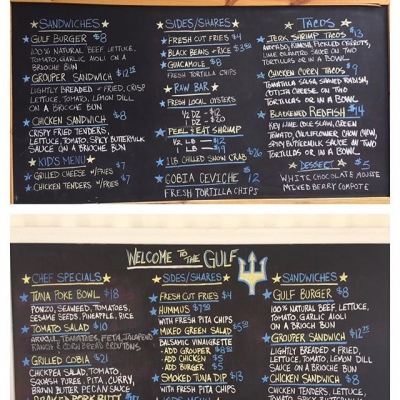 SANDWICHES
GULF BURGER $8
100% NATURAL BEEF, LETTUCE,
TOMATO, GARLIC AIOLI ON A
BRIOCHE BUN
GROUPER SANDWICH $12.75
LIGHTLY BREADED & FRIED, CRISP
LETTUCE, TOMATO, LEMON DILL
ON A BRIOCHE BUN
CHICKEN SANDWICH $8
CRISPY FRIED TENDERS,
LETTUCE, TOMATO, SPICY BUTTERMILK
SAUCE ON A BRIOCHE BUN
KID'S MENU
GRILLED CHEESE W/FRIES $7
CHICKEN TENDERS W/FRIES $7
SIDES/SHARES
FRESH CUT FRIES $4
BLACK BEANS & RICE $3.50
GUACAMOLE $8
FRESH TORTILLA CHIPS
RAW BAR
FRESH LOCAL OYSTERS
1/2 DZ
1 DZ
PEEL & EAT SHRIMP
1/2 LB $12
1 LB $19
1 LB CHILLED SNOW CRAB $26
COBIA CEVICHE $12
FRESH TORTILLA CHIPS
TACOS
JERK SHRIMP TACOS $13
AVOCADO, RUM PICKLED CARROTS,
SAUCE ON TWO
TORTILLAS OR IN A BOWL
CHICKEN CURRY TACOS $9
TOMATILLO SALSA, SHAVED RADISH,
COTIJA CHEESE, ON TWO
TORTILLAS OR IN A BOWL
BLACKENED REDFISH $14
KEY LIME COLE SLAW, GREEN
TOMATO, CAULIFLOWER CHOW CHOW,
SPICY BUTTERMILK SAUCE ON TWO
TORTILLAS OR IN A BOWL
DESSERT $5
WHITE CHOCOLATE MOUSSE
MIXED BERRY COMPOTE
WELCOME TO THE GULF
CHEF SPECIALS
TUNA POKE BOWL $18
PONZU, SEAWEED, TOMATOES,
SESAME SEEDS, PINEAPPLE, RICE
TOMATO SALAD $10
ARUGUL, TOMATOES, FETA, JALAPENO
RANCH & CORN BREAD CROUTONS
GRILLED COBIA $21
CHICKPEA SALAD, TOMATO,
SQUASH PUREE, PITA, CURRY,
BROWN BUTTER PECAN SAUCE
PORK BUTT
SIDES/SHARES
FRESH CUT FRIES $4
HUMMUS $7.50
WITH FRESH PITA CHIPS
MIXED GREEN SALAD
BALSAMIC VINAIGRETTE
- ADD GROUPER
- ADD CHICKEN $5
- ADD BURGER $5
SMOKED TUNA DIP $13
WITH FRESH PITA CHIPS
KIDS MENU
SANDWICHES
GULF BURGER $8
100% NATURAL BEEF, LETTUCE,
TOMATO, GARLIC AIOLI ON
A BRIOCH BUN
GROUPER SANDWICH $12.75
LIGHTLY BREADED & FRIED,
LETTUCE, TOMATO, LEMON DILL
SAUCE ON A BRIOCH BUN
CHICKEN SANDWICH $8
CHICKEN TENDERS, LETTUCE,
TOMATO, SPICY BUTTERMILK
SAUCE ON A BRIOCH BUN